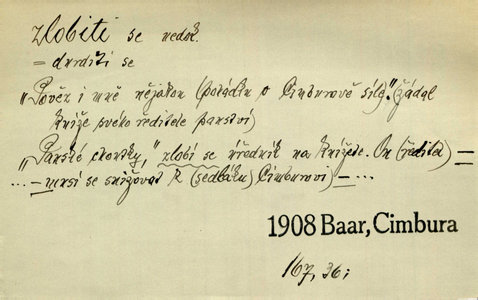 zlobiti se nedok.
= durditi se
"Pověz i mně nějakou (pořádku o Cimburově síle." (žádal
kníže svého ředitele panství)
"Panské choutky," zlobí se úředník na knížete. On (ředitel) =
... – musí se snižovat k (sedláku Cimburovi) – ...
1908 Baar, Cimbura
167, 36;